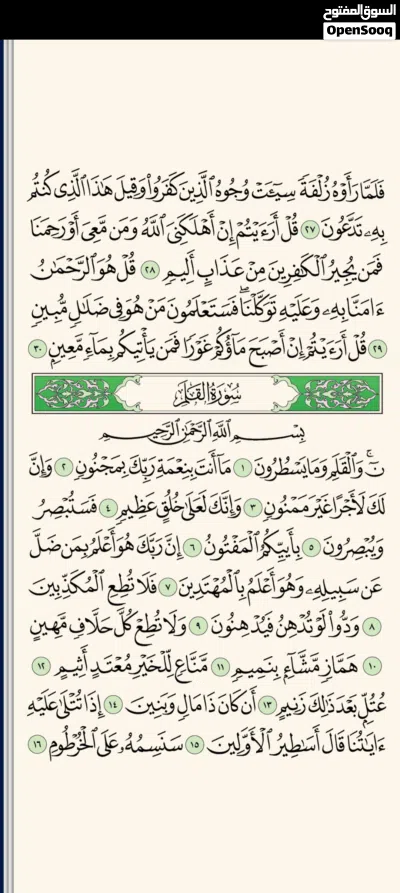 السوق المفتوح
OpenSooq
فَلَمَّا رَأَوْهُ زُلْفَةً سِيٓـَٔتْ وُجُوهُ ٱلَّذِينَ كَفَرُوا۟ وَقِيلَ هَـٰذَا ٱلَّذِى كُنتُم
بِهِۦ تَدَّعُونَ ٢٧ قُلْ أَرَءَيْتُمْ إِنْ أَهْلَكَنِىَ ٱللَّهُ وَمَن مَّعِىَ أَوْ رَحِمَنَا
فَمَن يُجِيرُ ٱلْكَـٰفِرِينَ مِنْ عَذَابٍ أَلِيمٍ ٢٨ قُلْ هُوَ ٱلرَّحْمَـٰنُ
ءَامَنَّا بِهِۦ وَعَلَيْهِ تَوَكَّلْنَا ۖ فَسَتَعْلَمُونَ مَنْ هُوَ فِى ضَلَـٰلٍ مُّبِينٍ
٢٩ قُلْ أَرَءَيْتُمْ إِنْ أَصْبَحَ مَآؤُكُمْ غَوْرًا فَمَن يَأْتِيكُم بِمَآءٍ مَّعِينٍ ٣٠
سُورَةُ القَلَمِ
بِسْمِ ٱللَّهِ ٱلرَّحْمَـٰنِ ٱلرَّحِيمِ
نٓ ۚ وَٱلْقَلَمِ وَمَا يَسْطُرُونَ ١ مَآ أَنتَ بِنِعْمَةِ رَبِّكَ بِمَجْنُونٍ ٢ وَإِنَّ
لَكَ لَأَجْرًا غَيْرَ مَمْنُونٍ ٣ وَإِنَّكَ لَعَلَىٰ خُلُقٍ عَظِيمٍ ٤ فَسَتُبْصِرُ
وَيُبْصِرُونَ ٥ بِأَييِّكُمُ ٱلْمَفْتُونُ ٦ إِنَّ رَبَّكَ هُوَ أَعْلَمُ بِمَن ضَلَّ
عَن سَبِيلِهِۦ وَهُوَ أَعْلَمُ بِٱلْمُهْتَدِينَ ٧ فَلَا تُطِعِ ٱلْمُكَذِّبِينَ
٨ وَدُّوا۟ لَوْ تُدْهِنُ فَيُدْهِنُونَ ٩ وَلَا تُطِعْ كُلَّ حَلَّافٍ مَّهِينٍ
١٠ هَمَّازٍ مَّشَّآءٍۭ بِنَمِيمٍ ١١ مَّنَّاعٍ لِّلْخَيْرِ مُعْتَدٍ أَثِيمٍ ١٢
عُتُلٍّۭ بَعْدَ ذَٰلِكَ زَنِيمٍ ١٣ أَن كَانَ ذَا مَالٍ وَبَنِينَ ١٤ إِذَا تُتْلَىٰ عَلَيْهِ
ءَايَـٰتُنَا قَالَ أَسَـٰطِيرُ ٱلْأَوَّلِينَ ١٥ سَنَسِمُهُۥ عَلَى ٱلْخُرْطُومِ ١٦